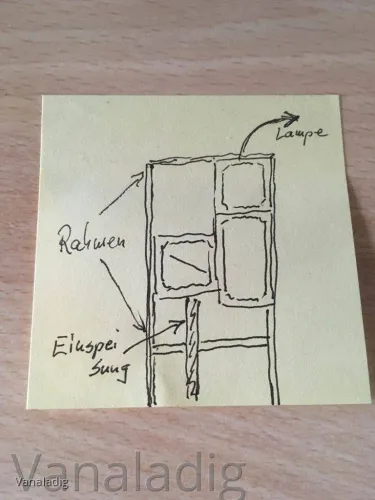 Lampe
Rahmen
Einspei
sung
Vanaladig
Vanaladig